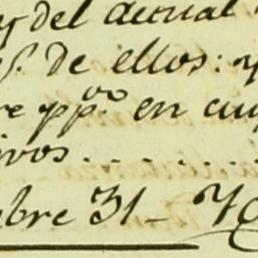 y del actual
s. de ellos: y
re ppdo en cuy
ivos. . . . . . .
bre 31 – Yo